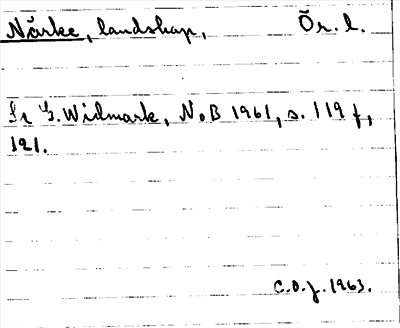 Närke, landskap, Ör. l.
Se G. Widmark, NoB 1961, s. 119 f,
121.
C.O.f. 1963.